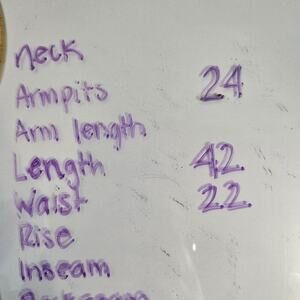 neck
Armpits 24
Arm length
Length 42
Waist 22
Rise
Inseam